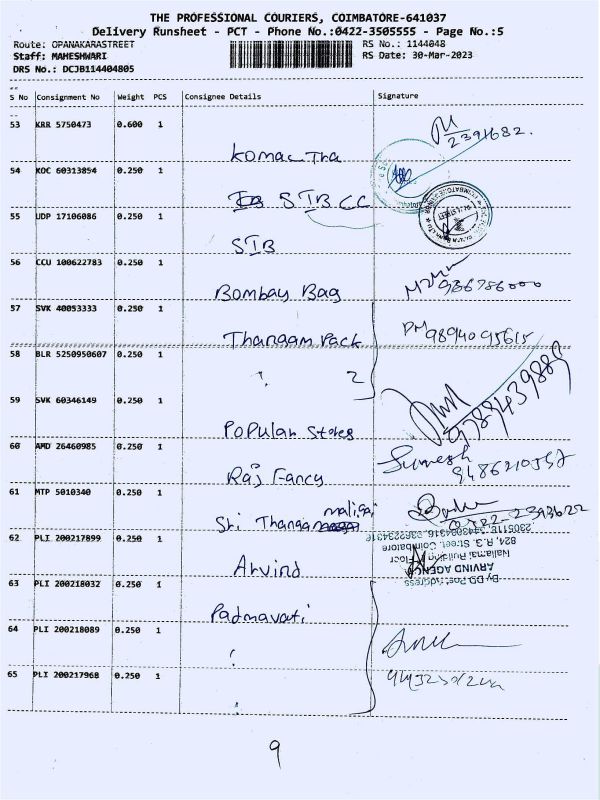 THE PROFESSIONAL COURIERS, COIMBATORE-641037
Delivery Runsheet - PCT - Phone No.:0422-3505555 - Page No.:5
Route: OPANAKARASTREET RS No.: 1144048
Staff: MAHESHWARI RS Date: 30-Mar-2023
DRS No.: DCJB114404805
S No Consignment No Weight PCS Consignee Details Signature
53 KRR 5750473 0.600 1
2391682.
Komaltha
54 KOC 60313854 0.250 1
SIB CC
55 UDP 17106086 0.250 1
SIB
56 CCU 100622783 0.250 1
Bombay Bag
986786000
57 SVK 40053333 0.250 1
Thangam Pack
9894095615
58 BLR 5250950607 0.250 1
2
59 SVK 60346149 0.250 1
Popular Stores
9788439889
60 AMD 26460985 0.250 1
Raj Fancy
Sumesh
61 MTP 5010340 0.250 1
Sri Thangam maligai
0422-2393622
62 PLI 200217899 0.250 1
Arvind
824, R.3. Street, Coimbatore
Nallamai Building Floor
ARVIND AGENC
63 PLI 200218032 0.250 1
Padmavati
64 PLI 200218089 0.250 1
65 PLI 200217968 0.250 1
9